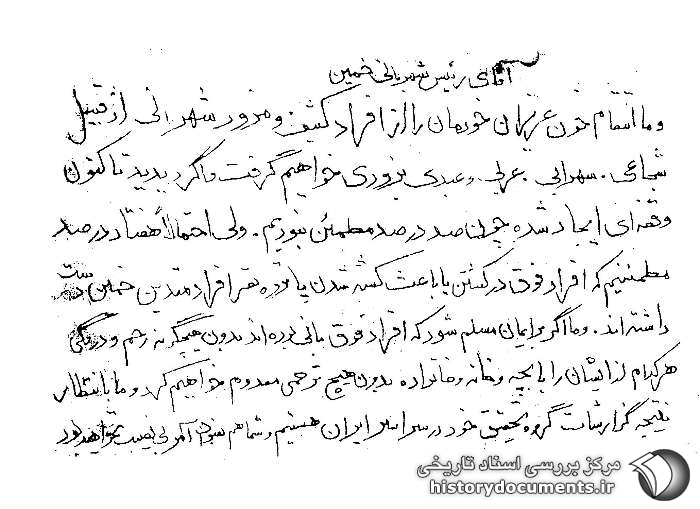 آقای رئیس شهربانی خمین
و ما انتقام خون عزیزان خودمان را از افراد کثیف و مزدور شهربانی از قبیل
شجاعی . سهرابی . عربی . و عبدی بزودی خواهیم گرفت و اگر دیدید تا کنون
وقفه‌ای ایجاد شده چون صد در صد مطمئن نبودیم . ولی احتمالاً هفتاد درصد
مطمئنیم که افراد فوق در کشتن یا باعث کشته شدن پانزده نفر افراد متدین خمین دست
داشته‌اند . و ما اگر برایمان مسلم شود که افراد فوق بانی بوده‌اند بدون هیچگونه رحم و
هر کدام از ایشان را با بچه و خانه و خانواده بدون هیچ ترحمی معدوم خواهیم کرد و ما بانتظار
نتیجه گزارشات گروه تحقیق خود در سراسر ایران هستیم و شما هم بی نصیب نخواهید بود
مرکز بررسی اسناد تاریخی
historydocuments.ir